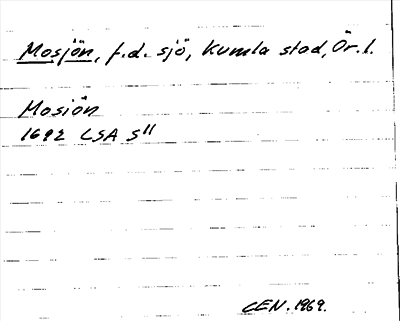 Mosjön, f.d. sjö, Kumla stad, Ör. l.
Mosiön
1692 LSA S11
CEN. 1969.